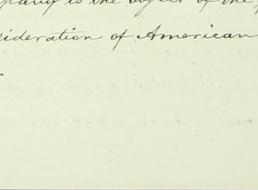 pany is the object of the
sideration of American